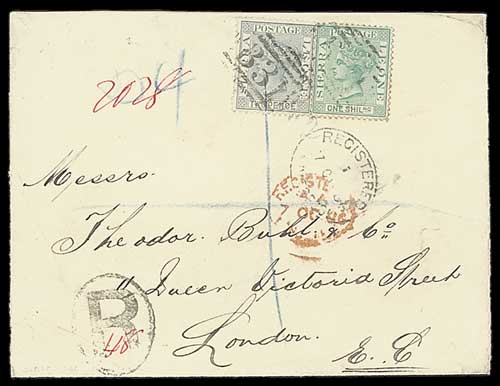 POSTAGE
SIERRA LEONE
TWO PENCE
POSTAGE
SIERRA LEONE
ONE SHILLG
2028
REGISTERED
7 OC
Messrs.
Theodor. Buhl & Co
11 Queen Victoria Street
London.
E. C
R
48